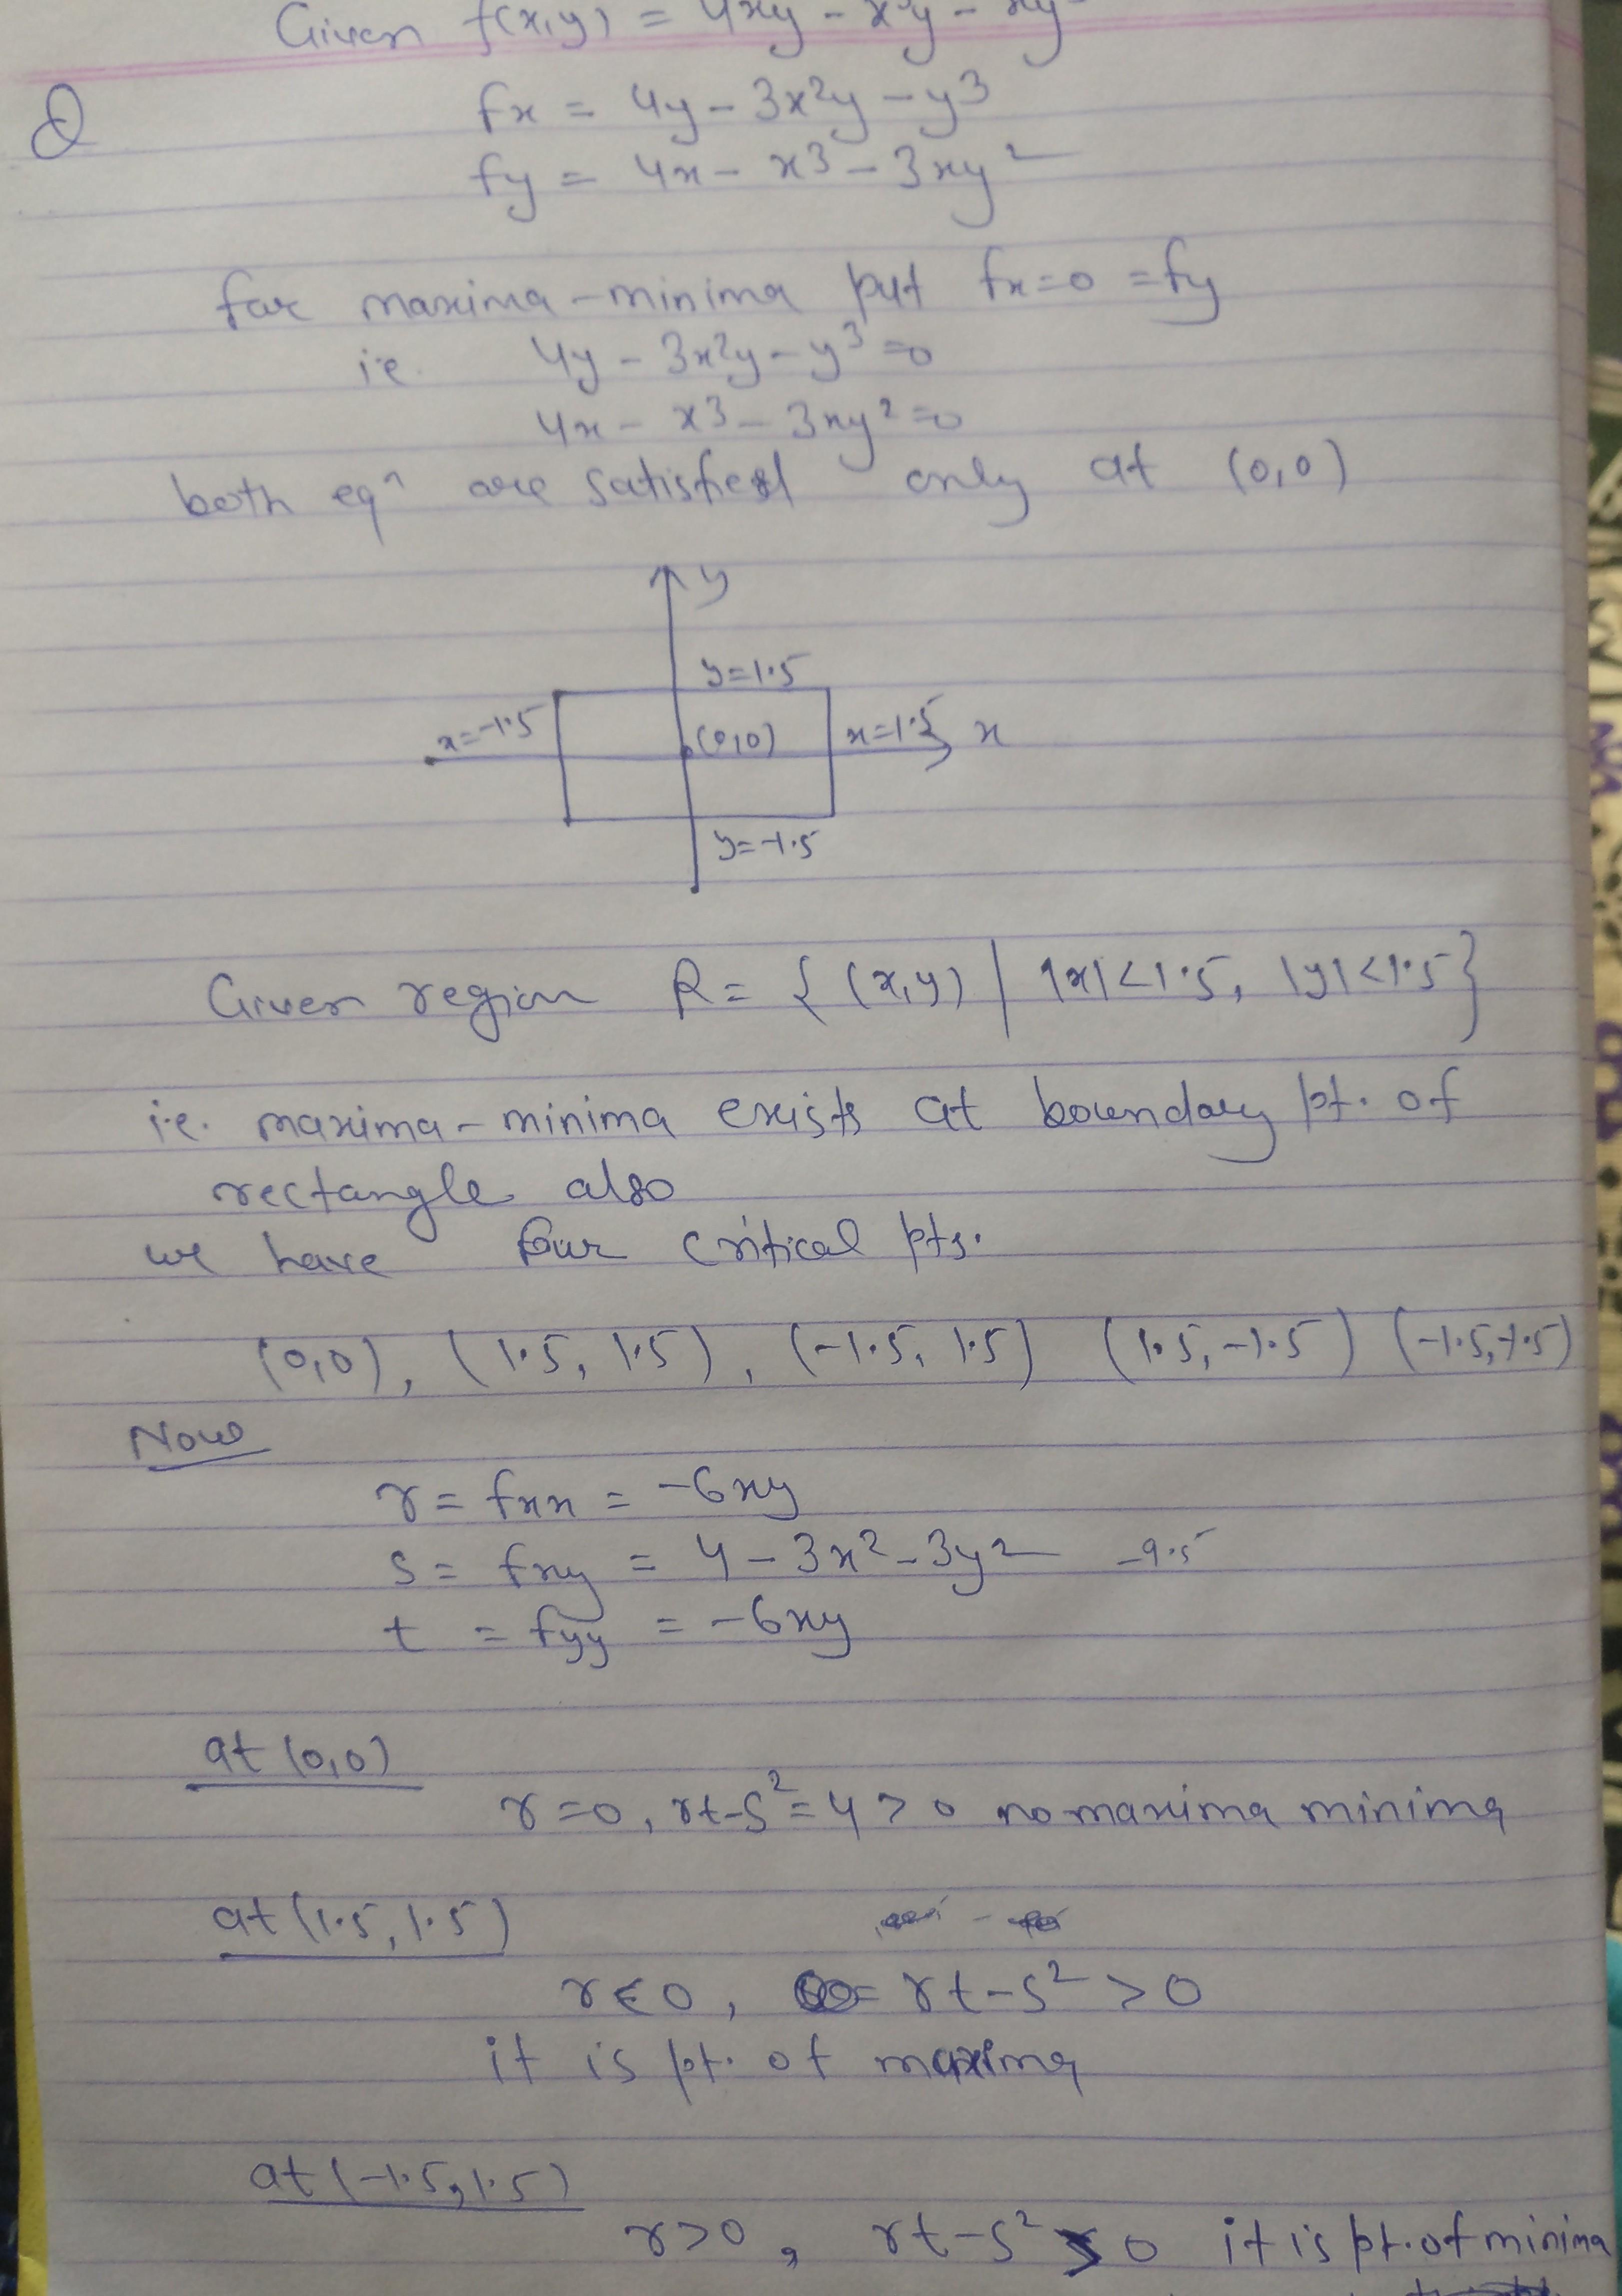 Given f(x,y) = 4xy - x³y - xy
Q
fx = 4y - 3x²y - y3
fy = 4x - x3 - 3xy²
for maxima-minima put fx=0 =fy
i.e. 4y - 3x²y - y³ =0
4x - x3 - 3xy² =0
both eqⁿ are satisfied only at (0,0)
y
y=1.5
x=-1.5 (0,0) x=1.5 x
y=-1.5
Given region R= { (x,y) | |x|<1.5, |y|<1.5}
i.e. maxima-minima exists at boundary pt. of
rectangle also
we have four critical pts.
(0,0), (1.5, 1.5), (-1.5, 1.5) (1.5,-1.5) (-1.5,-1.5)
Now
r = fxx = -6xy
s = fxy = 4 - 3x² - 3y² -9.5
t = fyy = -6xy
at (0,0)
r=0, rt-s²=4>0 no maxima minima
at (1.5,1.5)
r<0, = rt-s² >0
it is pt. of maxima
at (-1.5,1.5)
r>0, rt-s² 0 it is pt. of minima